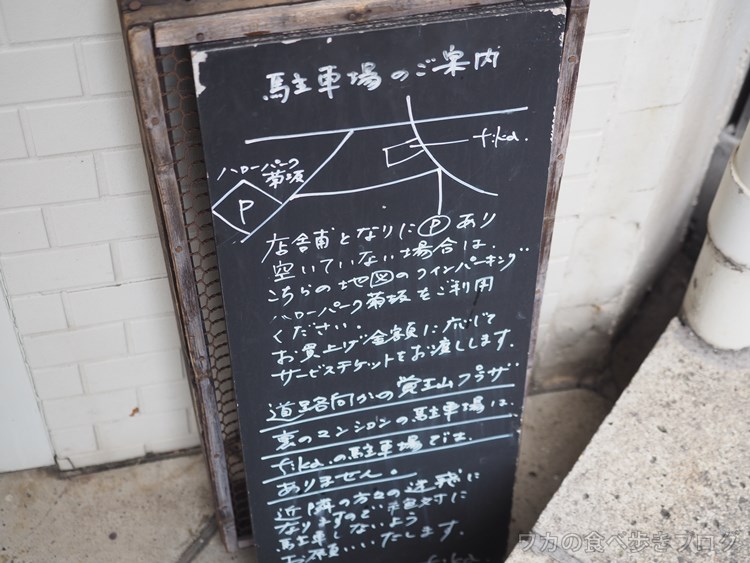 駐車場のご案内
fika.
ハローパーク
菊坂
P
店舗となりにⓅあり
空いていない場合は、
こちらの地図のコインパーキング
ハローパーク菊坂をご利用
ください。
お買上げ金額に応じて
サービスチケットをお渡しします。
道路向かの覚王山プラザ
裏のマンションの駐車場は、
fika.の駐車場では
ありません。
近隣の方々の迷惑に
なりますので、絶対に
駐車しないよう
お願いいたします。
fika.
ワカの食べ歩きブログ